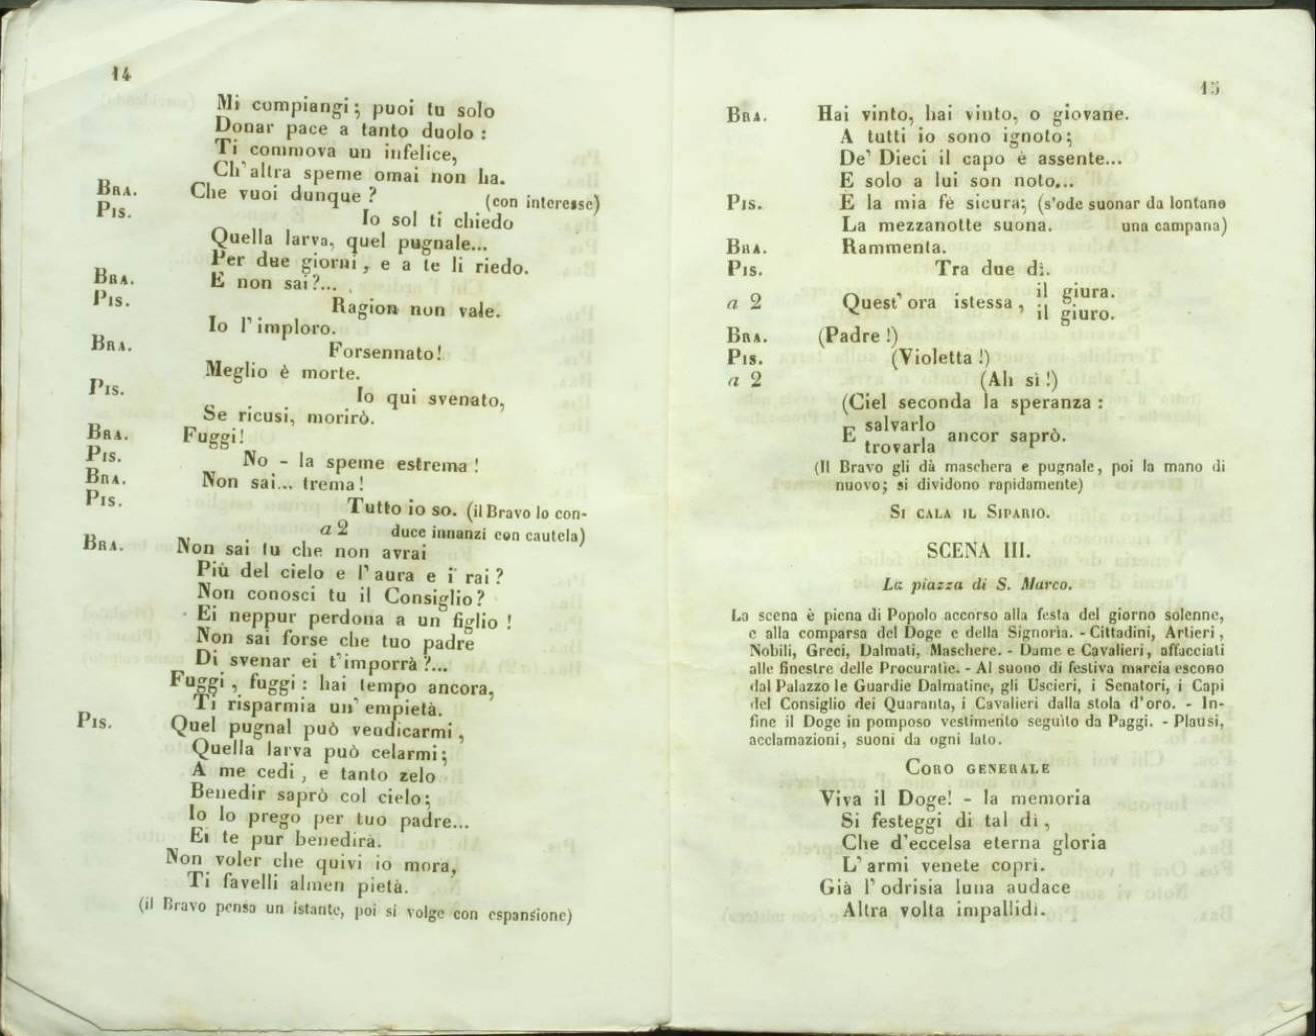 14
Mi compiangi; puoi tu solo
Donar pace a tanto duolo :
Ti commova un infelice,
Ch'altra speme omai non ha.
BRA. Che vuoi dunque ? (con interesse)
PIS. Io sol ti chiedo
Quella larva, quel pugnale...
Per due giorni, e a te li riedo.
BRA. E non sai?...
PIS. Ragion non vale.
Io l'imploro.
BRA. Forsennato!
Meglio è morte.
PIS. Io qui svenato,
Se ricusi, morirò.
BRA. Fuggi!
PIS. No - la speme estrema !
BRA. Non sai... trema!
PIS. Tutto io so. (il Bravo lo con-
a 2 duce innanzi con cautela)
BRA. Non sai tu che non avrai
Più del cielo e l'aura e i rai ?
Non conosci tu il Consiglio?
Ei neppur perdona a un figlio !
Non sai forse che tuo padre
Di svenar ei t'imporrà ?...
Fuggi, fuggi : hai tempo ancora,
Ti risparmia un' empietà.
PIS. Quel pugnal può vendicarmi,
Quella larva può celarmi;
A me cedi, e tanto zelo
Benedir saprò col cielo;
Io lo prego per tuo padre...
Ei te pur benedirà.
Non voler che quivi io mora,
Ti favelli almen pietà.
(il Bravo pensa un istante, poi si volge con espansione)
15
BRA. Hai vinto, hai vinto, o giovane.
A tutti io sono ignoto;
De' Dieci il capo è assente...
E solo a lui son noto...
PIS. E la mia fè sicura; (s'ode suonar da lontano
La mezzanotte suona. una campana)
BRA. Rammenta.
PIS. Tra due dì.
a 2 Quest' ora istessa, il giura.
il giuro.
BRA. (Padre !)
PIS. (Violetta !)
a 2 (Ah sì !)
(Ciel seconda la speranza :
E salvarlo ancor saprò.
trovarla
(Il Bravo gli dà maschera e pugnale, poi la mano di
nuovo; si dividono rapidamente)
SI CALA IL SIPARIO.
SCENA III.
La piazza di S. Marco.
La scena è piena di Popolo accorso alla festa del giorno solenne,
e alla comparsa del Doge e della Signoria. - Cittadini, Artieri,
Nobili, Greci, Dalmati, Maschere. - Dame e Cavalieri, affacciati
alle finestre delle Procuratie. - Al suono di festiva marcia escono
dal Palazzo le Guardie Dalmatine, gli Uscieri, i Senatori, i Capi
del Consiglio dei Quaranta, i Cavalieri dalla stola d'oro. - In-
fine il Doge in pomposo vestimento seguìto da Paggi. - Plausi,
acclamazioni, suoni da ogni lato.
CORO GENERALE
Viva il Doge! - la memoria
Si festeggi di tal dì,
Che d'eccelsa eterna gloria
L'armi venete coprì.
Già l'odrisia luna audace
Altra volta impallidì.